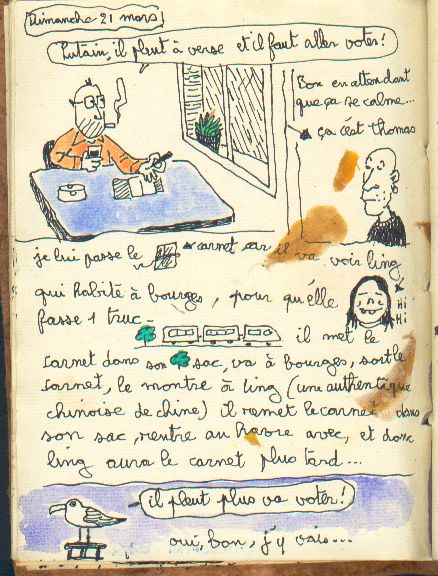 Dimanche 21 mars
Putain, il pleut à verse et il faut aller voter!
Bon en attendant
que ça se calme...
ça c'est Thomas
je lui passe le carnet car il va voir ling
qui habite à bourges, pour qu'elle
fasse 1 truc.
Hi
Hi
il met le
carnet dans son sac, va à bourges, sort le
carnet, le montre à ling (une authentique
chinoise de chine) il remet le carnet dans
son sac, rentre au havre avec, et donc
ling aura le carnet plus tard...
il pleut plus va voter!
oui, bon, j'y vais...